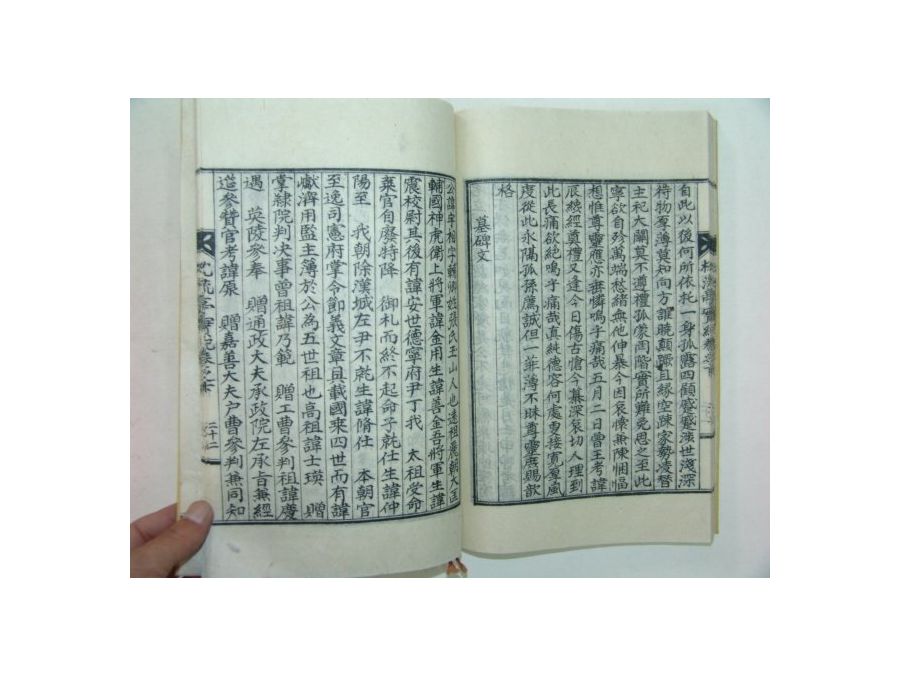 自此以後何所依托一身孤露四顧蹙蹙涉世淺深
待物厚薄莫知向方誰曉顛躓且緣空踈家勢凌替
主祀大闕莫不遵禮孤蒙両階實所難免思之至此
寧欲自殄萬端愁緒無他伸暴今因哀懷無陳悃愊
相惟尊靈應亦垂憐嗚乎痛哉五月二日曽王考諱
辰緦經奠禮又逢今日傷古愴今綦深哀切人理到
此長痛欲絶嗚乎痛哉真純德容何處更接寛風
度從此永隔孤孫薦誠但一菲薄不昧尊靈庶賜歆
格
墓碑文
公諱 字 姓張氏玉山人也遠祖麗朝大匡
輔國神虎衛上將軍諱金用生諱善金吾將軍生諱
震校尉其後有諱安世德寧府尹丁我 太祖受命
棄官自廢特降 御札而終不起命子就任生諱仲
陽至 我朝除漢城左尹不就生諱脩仕 本朝官
至逸司憲府掌令節義文章具載國来四世而有諱
獻濟用監主簿於公為五世祖也高祖諱士瑛 贈
掌隷院判决事曾祖諱乃範 贈工曹參判祖諱慶
遇 英陵參奉 贈通政大夫承政院左承旨兼經
筵參賛官考諱 贈嘉善大夫户曹參判兼同知